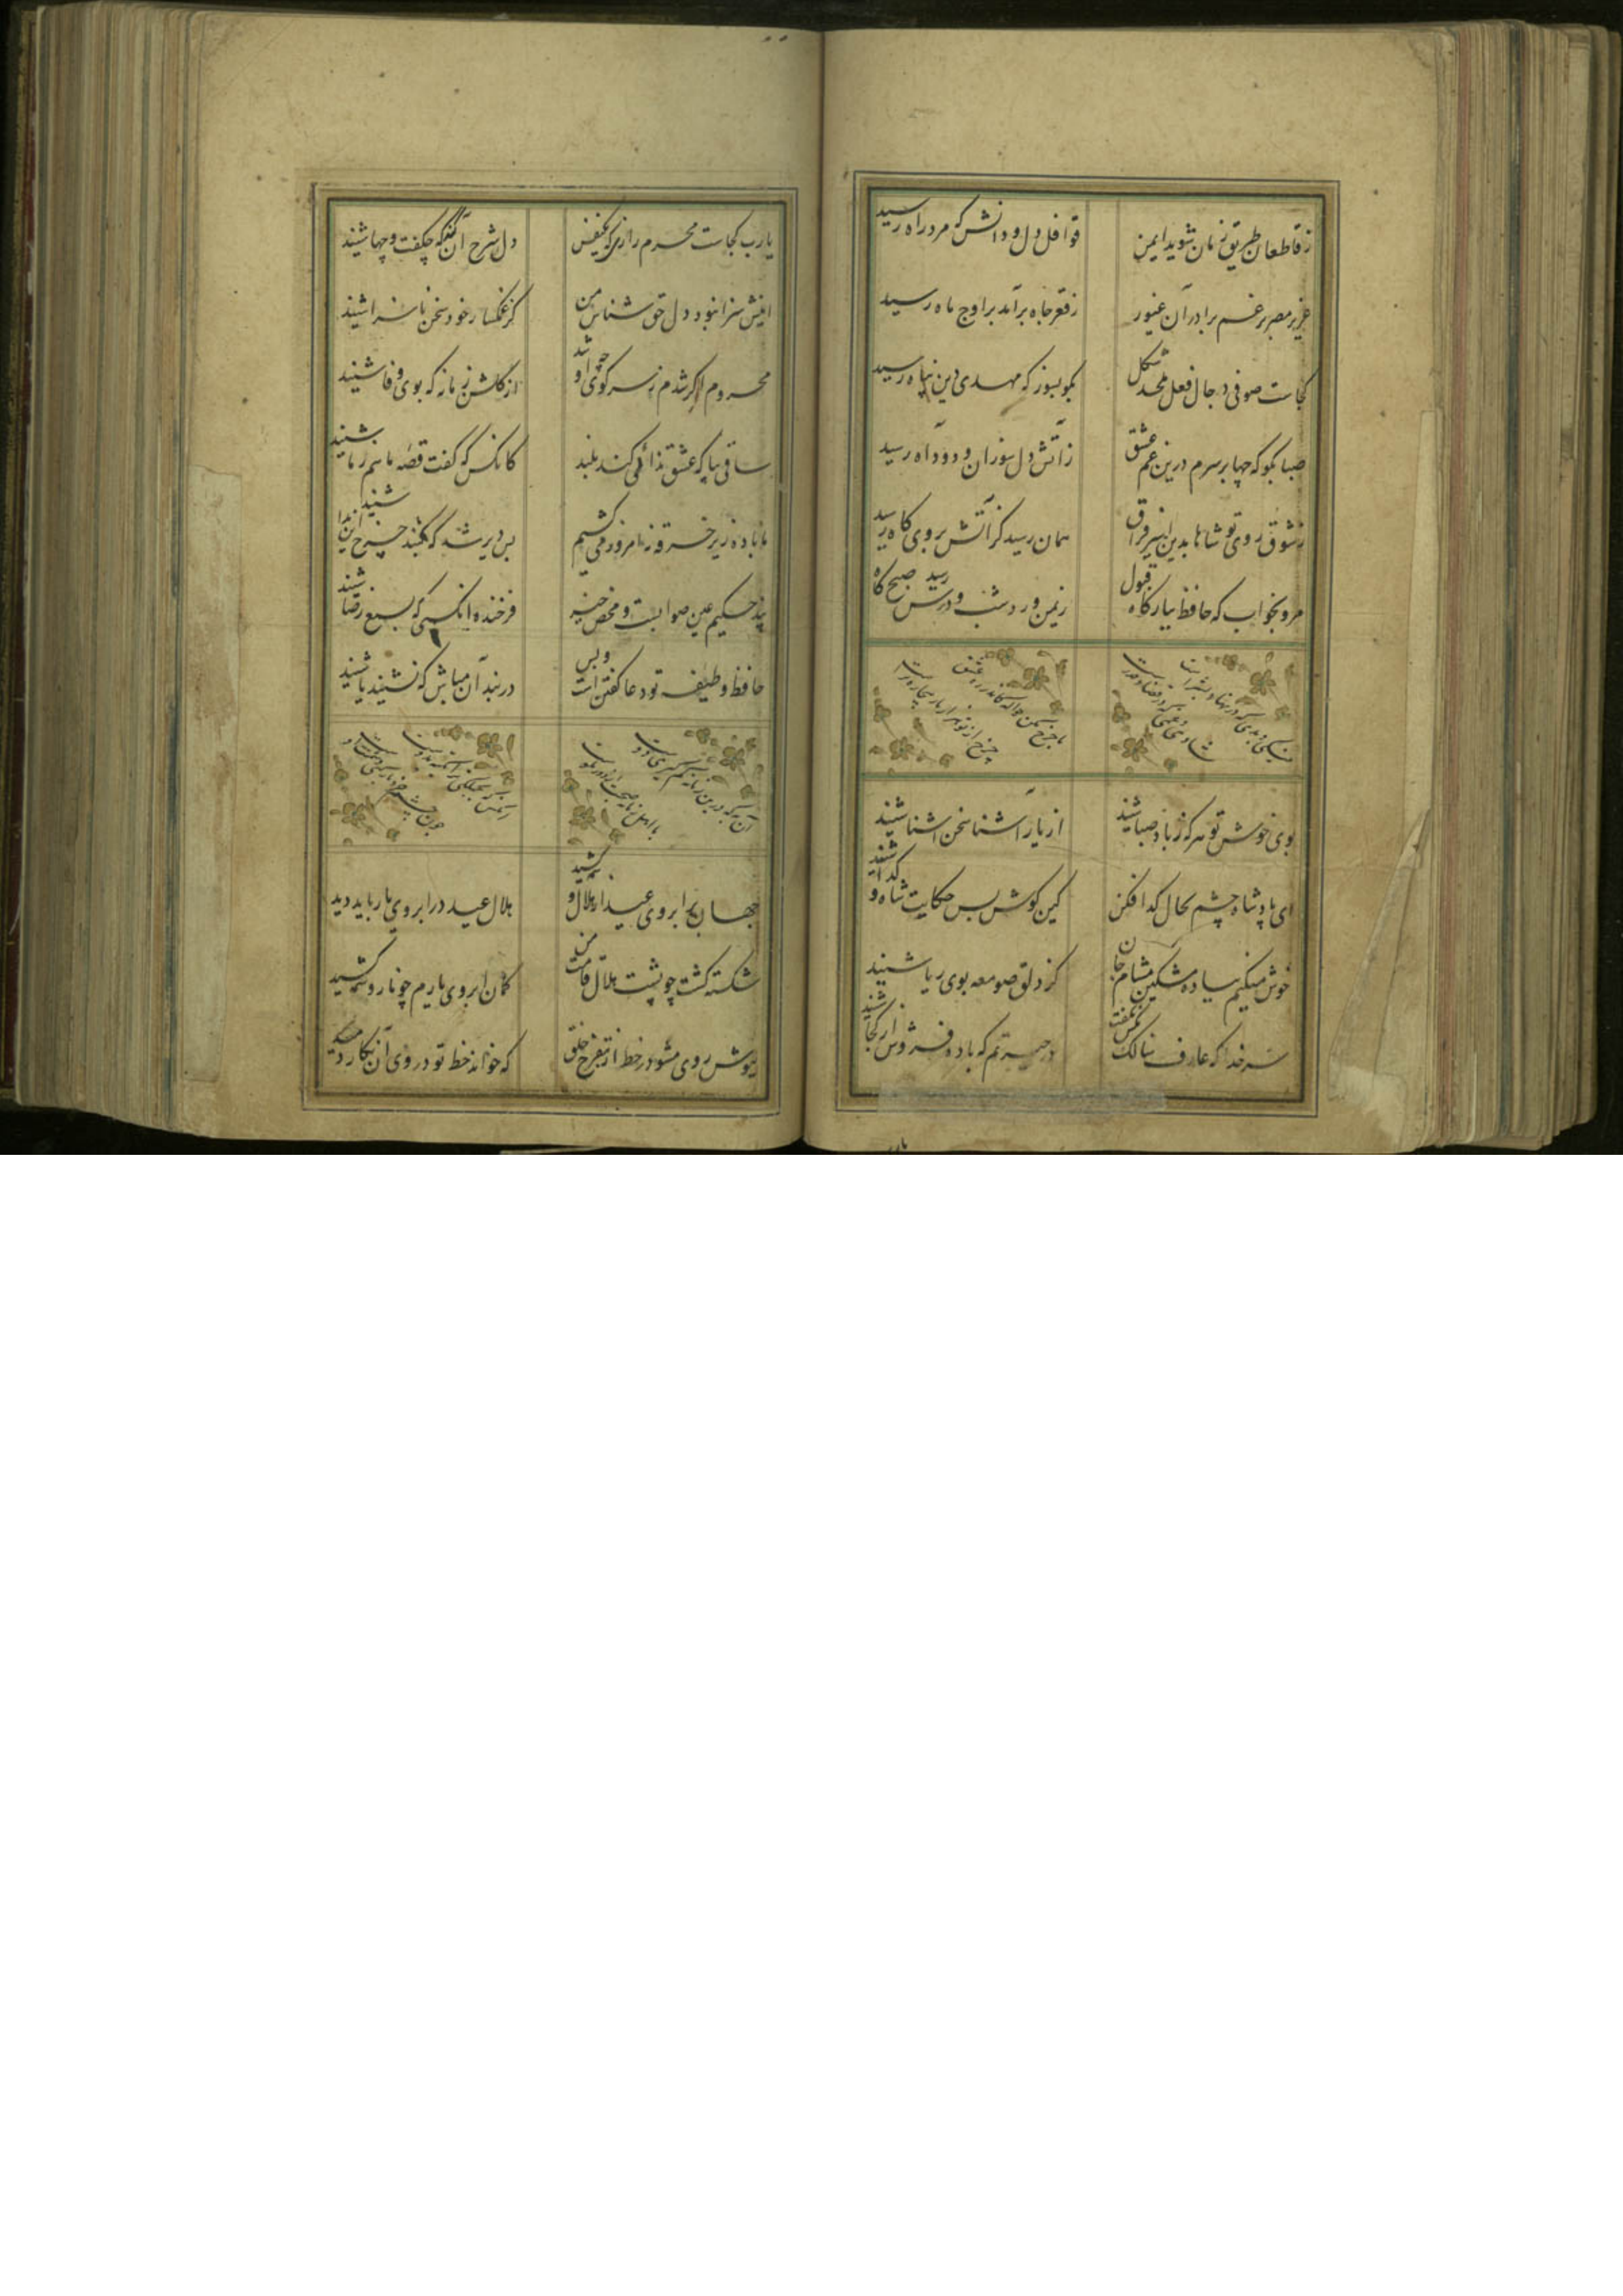 ز قاطعان طریق زمان شوید ایمن قوافل دل و دانش که مرد راه رسید
عزیز مصر برغم برادران غیور ز قعر چاه برآمد بر اوج ماه رسید
کجاست صوفی دجال فعل ملحد شکل بگو بسوز که مهدی دین پناه رسید
صبا بگو که چها بر سرم درین غم عشق ز آتش دل سوزان و دود آه رسید
ز شوق روی تو شاها بدین اسیر فراق همان رسید کز آتش بروی کاه رسید
مرو بخواب که حافظ ببارگاه قبول ز یمن ورد شب و درس صبحگاه رسید
نیکی و بدی که در نهاد بشر است شادی و غمی که در قضا و قدر است
با چرخ مکن حواله کاندر ره عشق چرخ از تو هزار بار بیچاره‌تر است
بوی خوش تو هر که ز باد صبا شنید از یار آشنا سخن آشنا شنید
ای پادشاه چشم بحال گدا فکن کین گوش بس حکایت شاه و گدا شنید
خوش میکنم بباده مشکین مشام جان کز دلق صومعه بوی ریا شنید
سر خدا که عارف سالک بکس نگفت در حیرتم که باده فروش از کجا شنید
یا رب کجاست محرم رازی که یکنفس دل شرح آن دهد که چگفت و چها شنید
اینش سزا نبود دل حق شناس من کز غمگسار خود سخن ناسزا شنید
محروم اگر شدم ز سر کوی او چه شد از گلشن زمانه که بوی وفا شنید
ساقی بیا که عشق ندا می کند بلند کانکس که گفت قصه ما هم ز ما شنید
ما باده زیر خرقه نه امروز می کشیم بس دیر شد که گنبد چرخ این ندا شنید
پند حکیم عین صوابست و محض خیر فرخنده آنکسی که بسمع رضا شنید
حافظ وظیفه تو دعا گفتن است و بس در بند آن مباش که نشنید یا شنید
آن به که درین زمانه کم گیری دوست با اهل زمانه صحبت از دور نکوست
چون چشم خرد باز کنی دشمنت اوست
جهان بر ابروی عید از هلال وسمه کشید هلال عید در ابروی یار باید دید
شکسته گشت چو پشت هلال قامت من کمان ابروی یارم چو باز وسمه کشید
بپوش روی مشو در خط از تفرج خلق که خواند خط تو در روی آن نگار دمید